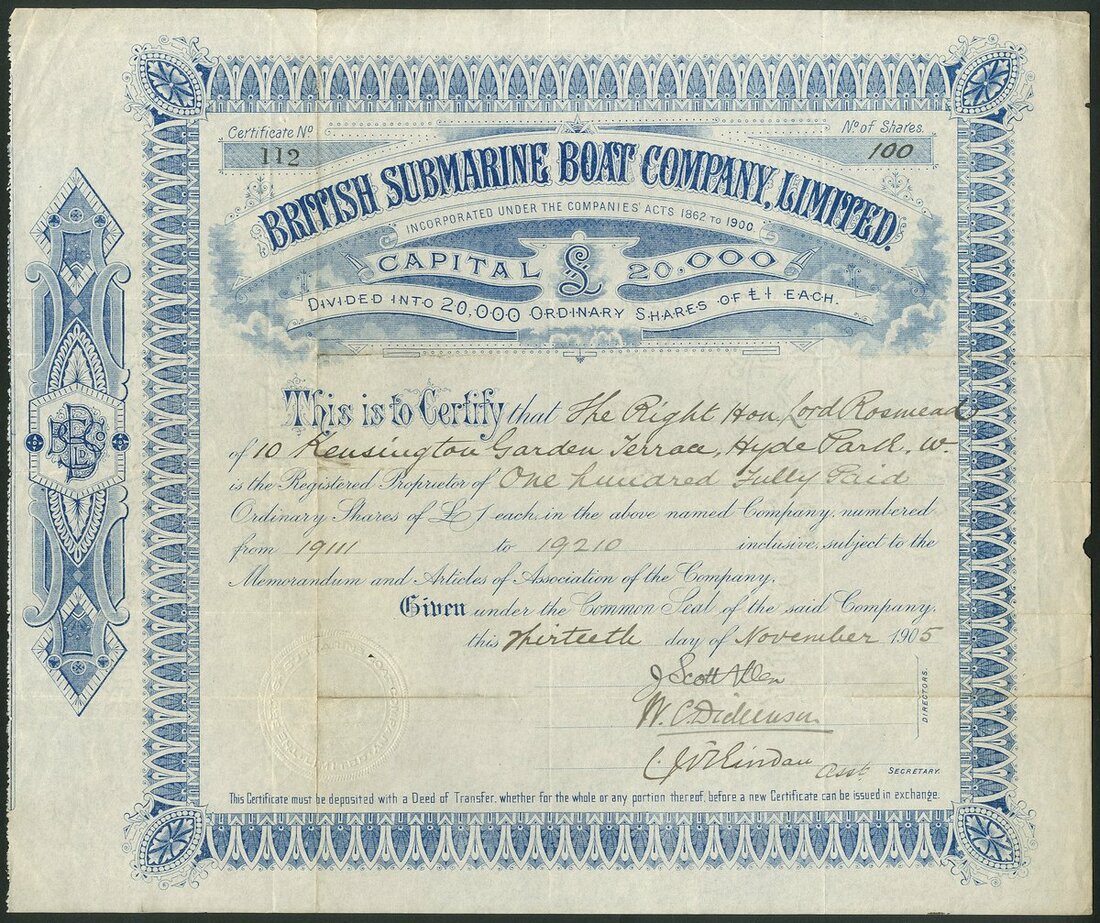 Certificate No
112
No of Shares.
100
BRITISH SUBMARINE BOAT COMPANY, LIMITED.
INCORPORATED UNDER THE COMPANIES' ACTS 1862 TO 1900.
CAPITAL £ 20,000
DIVIDED INTO 20,000 ORDINARY SHARES OF £1 EACH.
This is to Certify that The Right Hon Lord Rosmead
of 10 Kensington Garden Terrace, Hyde Park. W.
is the Registered Proprietor of One hundred Fully Paid
Ordinary Shares of £1 each, in the above named Company, numbered
from 19111 to 19210 inclusive, subject to the
Memorandum and Articles of Association of the Company,
Given under the Common Seal of the said Company,
this Thirteeth day of November 1905
J Scott Allen
W. C. Dickenson
DIRECTORS.
Asst. SECRETARY.
This Certificate must be deposited with a Deed of Transfer, whether for the whole or any portion thereof, before a new Certificate can be issued in exchange.